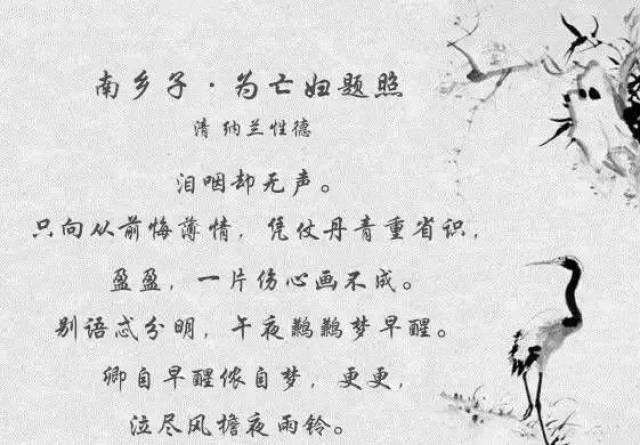 南乡子·为亡妇题照
清 纳兰性德
泪咽却无声。
只向从前悔薄情，凭仗丹青重省识，
盈盈，一片伤心画不成。
别语忒分明，午夜鹣鹣梦早醒。
卿自早醒侬自梦，更更，
泣尽风檐夜雨铃。